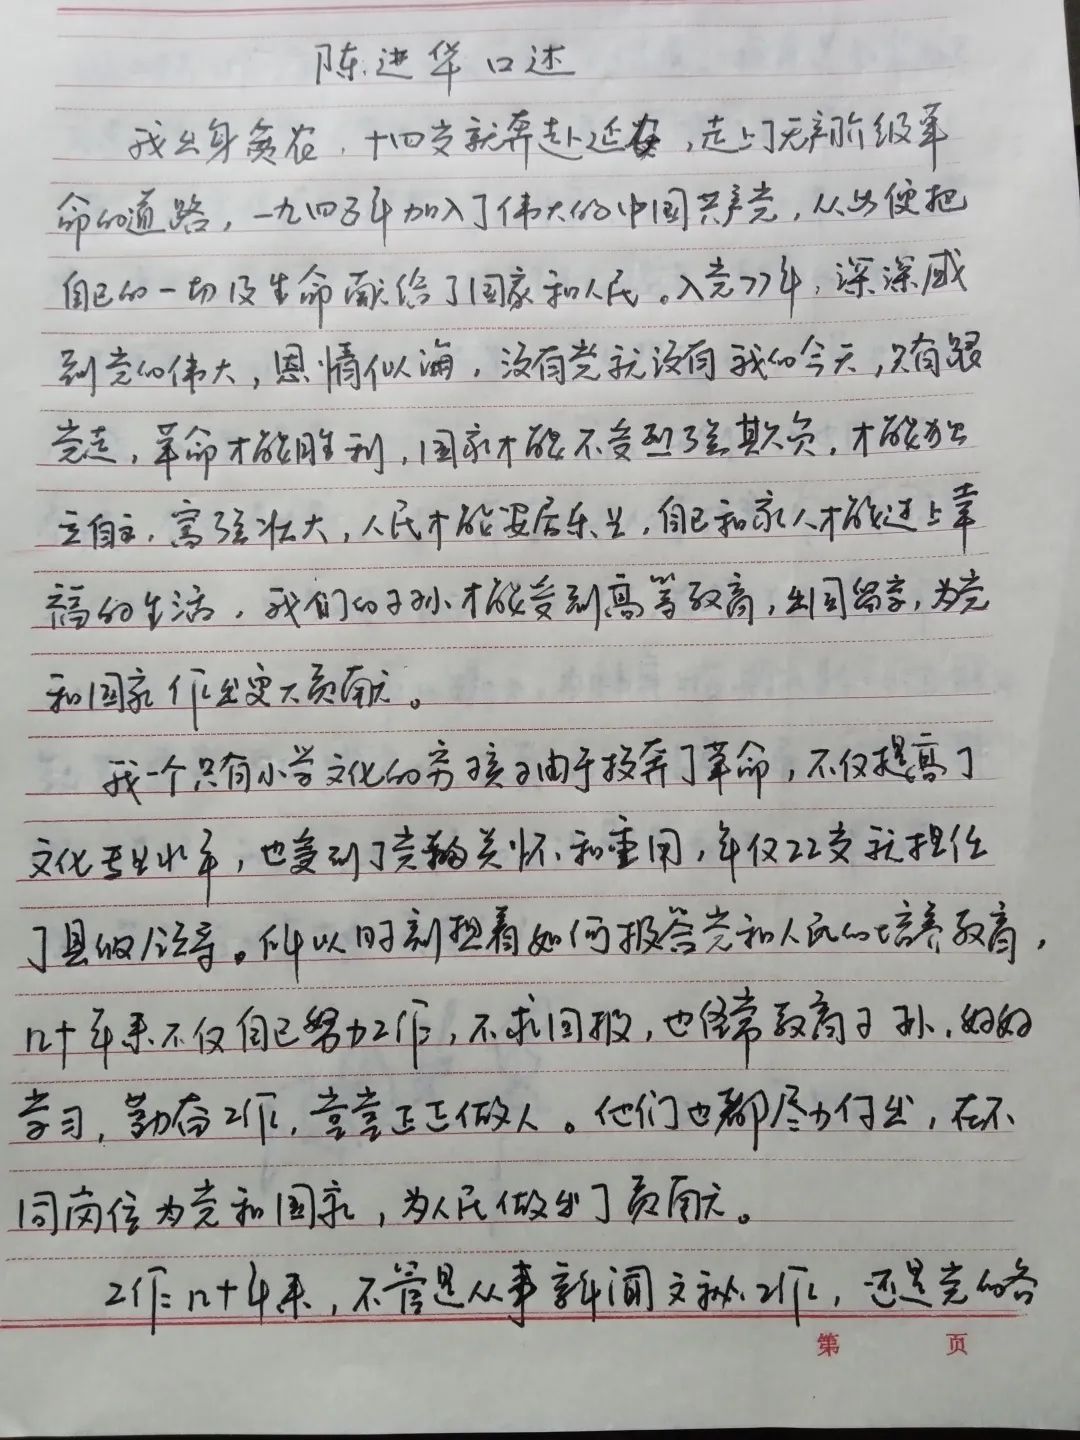 陈进华口述
我出身贫农，十四岁就奔赴延安，走上了无产阶级革
命的道路，一九四五年加入了伟大的中国共产党，从此便把
自己的一切及生命献给了国家和人民。入党77年，深深感
到党的伟大，恩情似海，没有党就没有我的今天，只有跟
党走，革命才能胜利，国家才能不受列强欺负，才能独
立自主，富强壮大，人民才能安居乐业，自己和家人才能过上幸
福的生活，我们的子孙才能受到高等教育，出国留学，为党
和国家作出更大贡献。
我一个只有小学文化的穷孩子由于投奔了革命，不仅提高了
文化专业水平，也受到了党的关怀和重用，年仅22岁就担任
了县级领导。所以时刻想着如何报答党和人民的培养教育，
几十年来不仅自己努力工作，不求回报，也经常教育子孙，好好
学习，勤奋工作，堂堂正正做人。他们也都尽力付出，在不
同岗位为党和国家，为人民做出了贡献。
工作几十年来，不管是从事新闻文秘工作，还是党的各
第 页